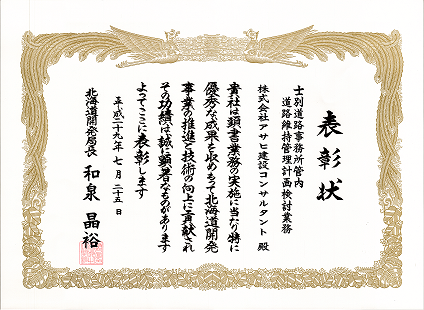 表彰状
士別道路事務所管内
道路維持管理計画検討業務
株式会社アサヒ建設コンサルタント 殿
貴社は頭書業務の実施に当たり特に
優秀な成果を収めもって北海道開発
事業の推進と技術の向上に貢献され
その功績は誠に顕著なものがあります
よってここに表彰します
平成二十九年七月二十五日
北海道開発局長 和泉晶裕